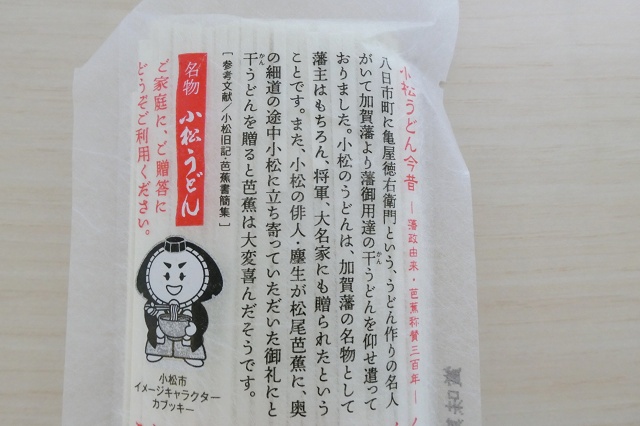 小松うどん今昔 ー藩政由来・芭蕉称賛三百年ー
八日市町に亀屋徳右衛門という、うどん作りの名人
がいて加賀藩より藩御用達の干うどんを仰せ遣って
かん
おりました。小松のうどんは、加賀藩の名物として
藩主はもちろん、将軍、大名家にも贈られたという
ことです。また、小松の俳人・塵生が松尾芭蕉に、奥
の細道の途中小松に立ち寄っていただいた御礼にと
干うどんを贈ると芭蕉は大変喜んだそうです。
かん
[参考文献/小松旧記・芭蕉書簡集]
名物 小松うどん
ご家庭に、ご贈答に
どうぞご利用ください。
小松市
イメージキャラクター
カブッキー